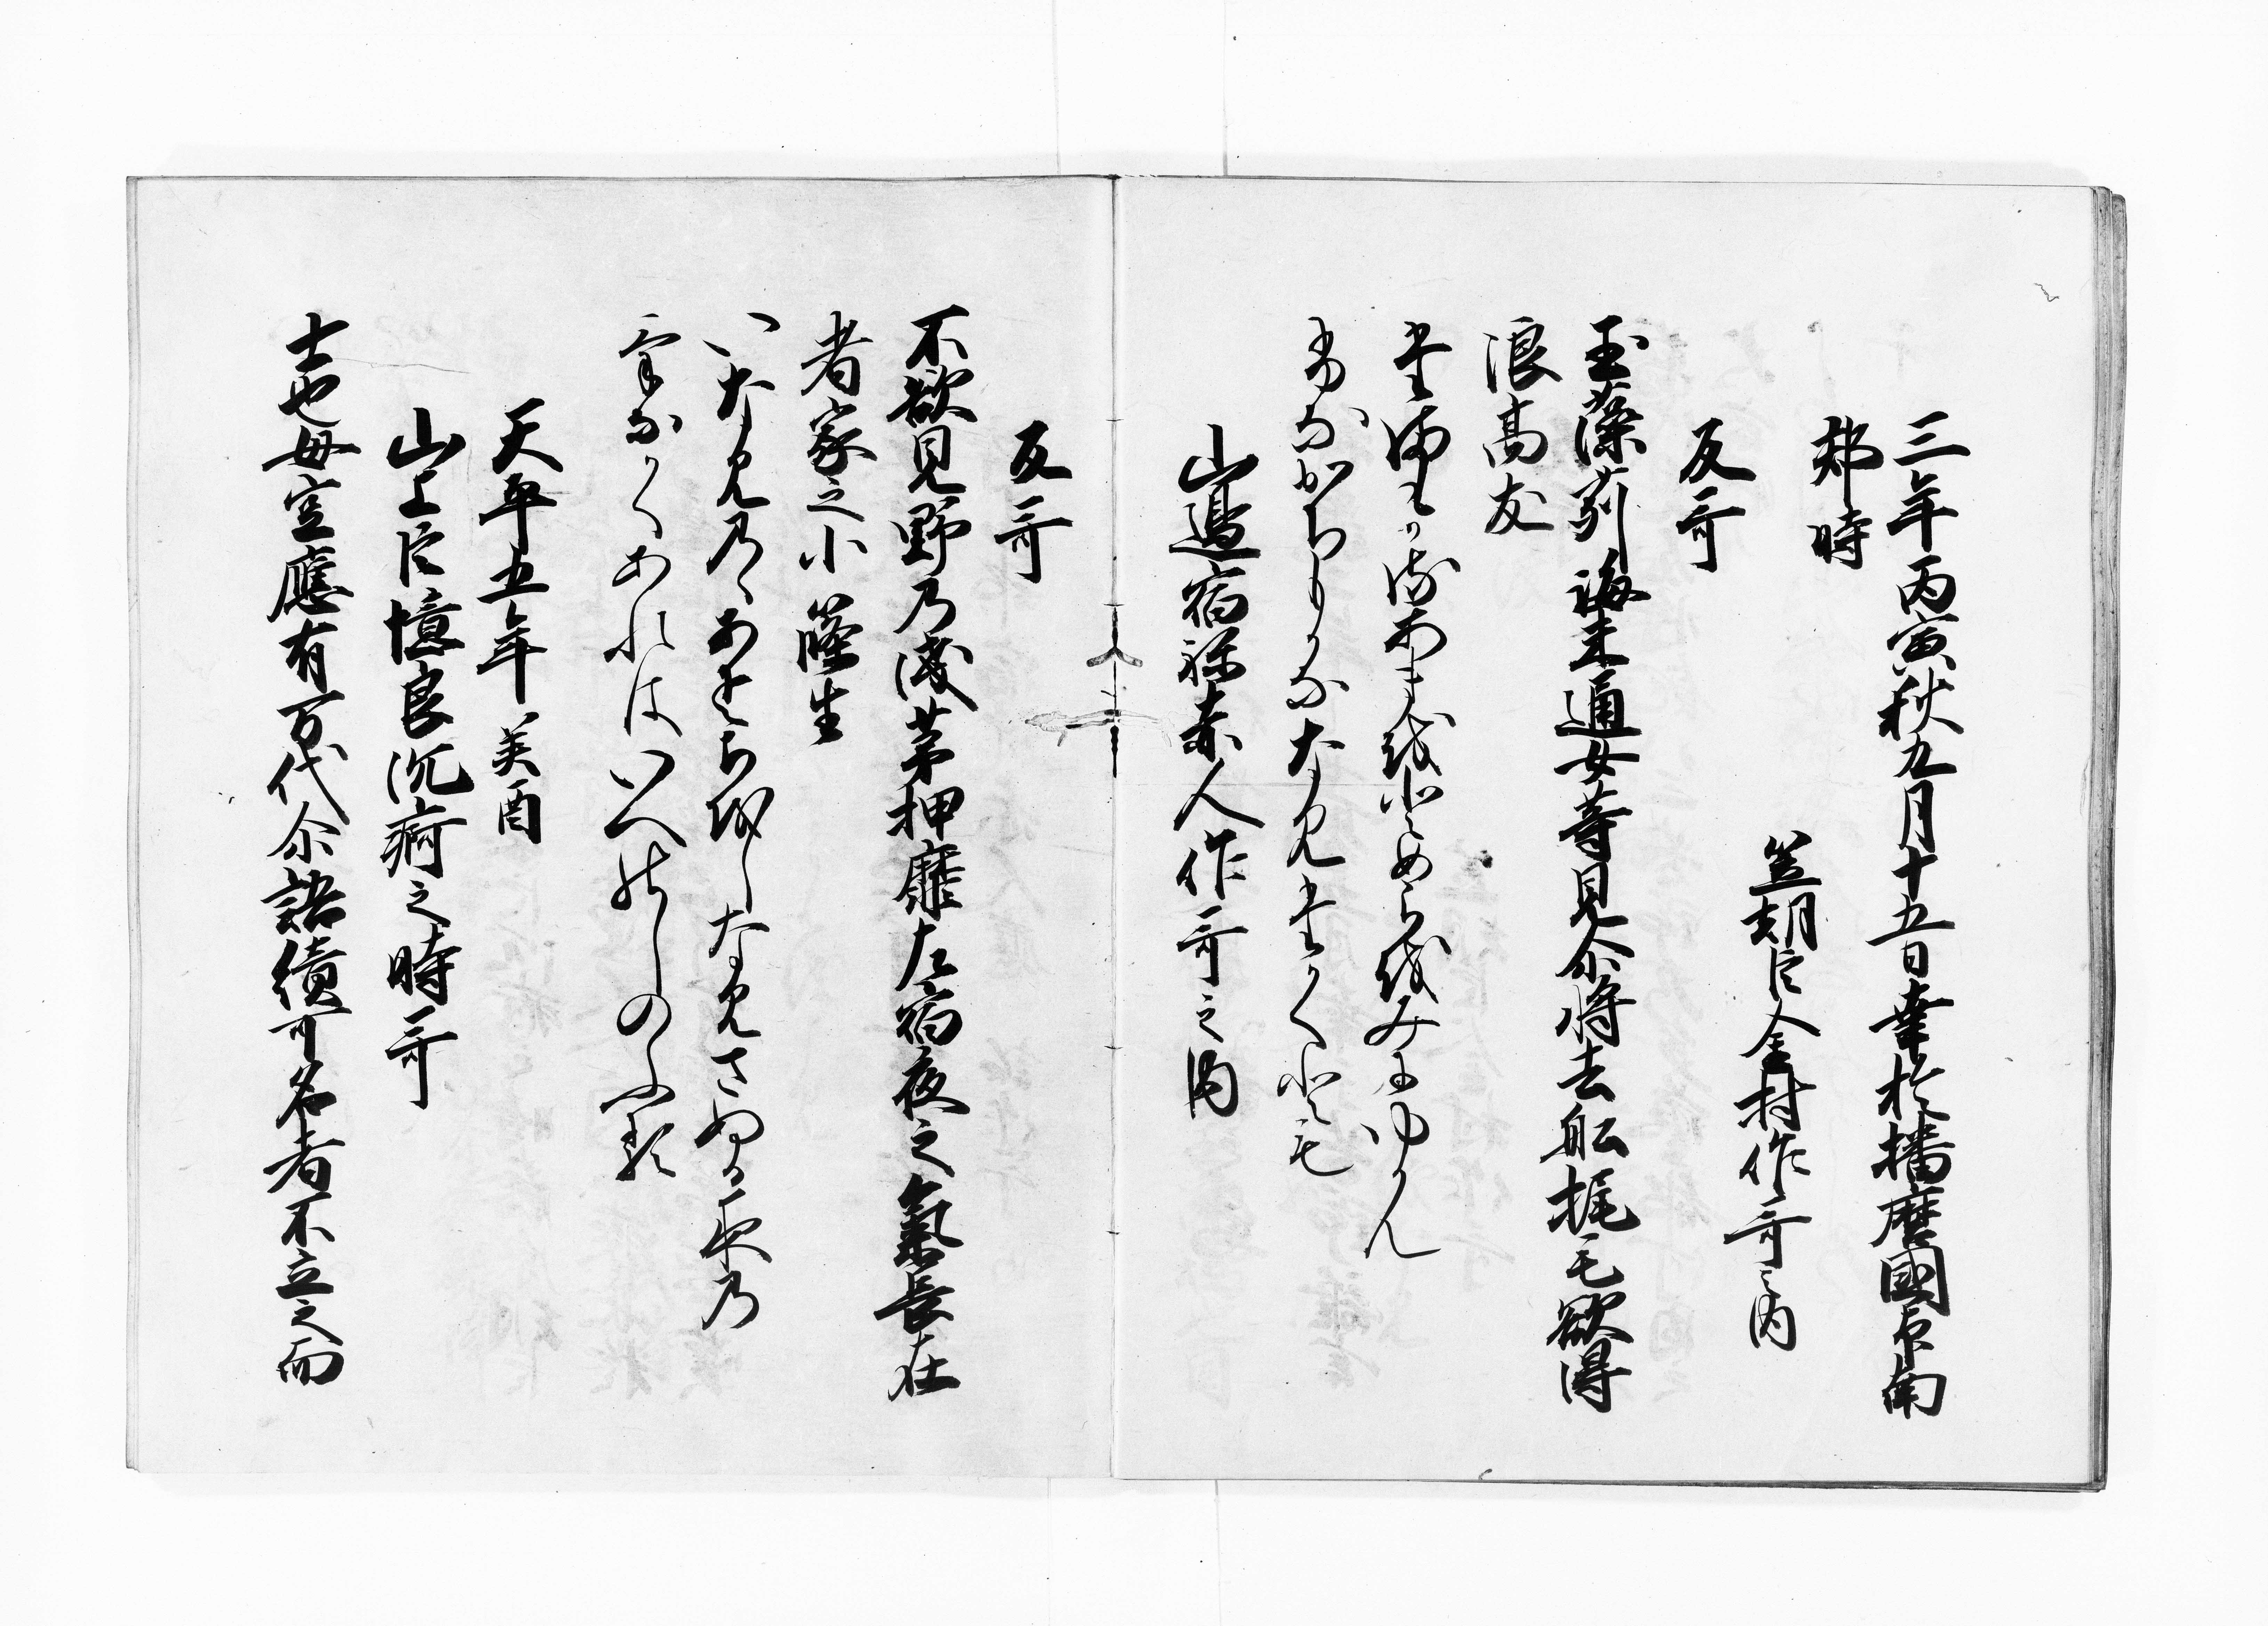 三年丙寅秋九月十五日幸於播磨國印南
郡時
笠朝臣金村作哥之内
反哥
玉藻苅海未通女等見尓将去舩梶毛欲得
浪高友
たまもかるあまをとめらをみにゆかん
ふなかちもかななみたかくとも
山邊宿祢赤人作哥之内
反哥
不欲見野乃浅茅押靡左宿夜之氣長在
者家之小篠生
いなみのゝあさちおしなみさぬるよの
けなかくあれはいへのしのふる
天平五年 癸酉
山上臣憶良沉痾之時哥
士也母空應有万代尓語續可名者不立之而